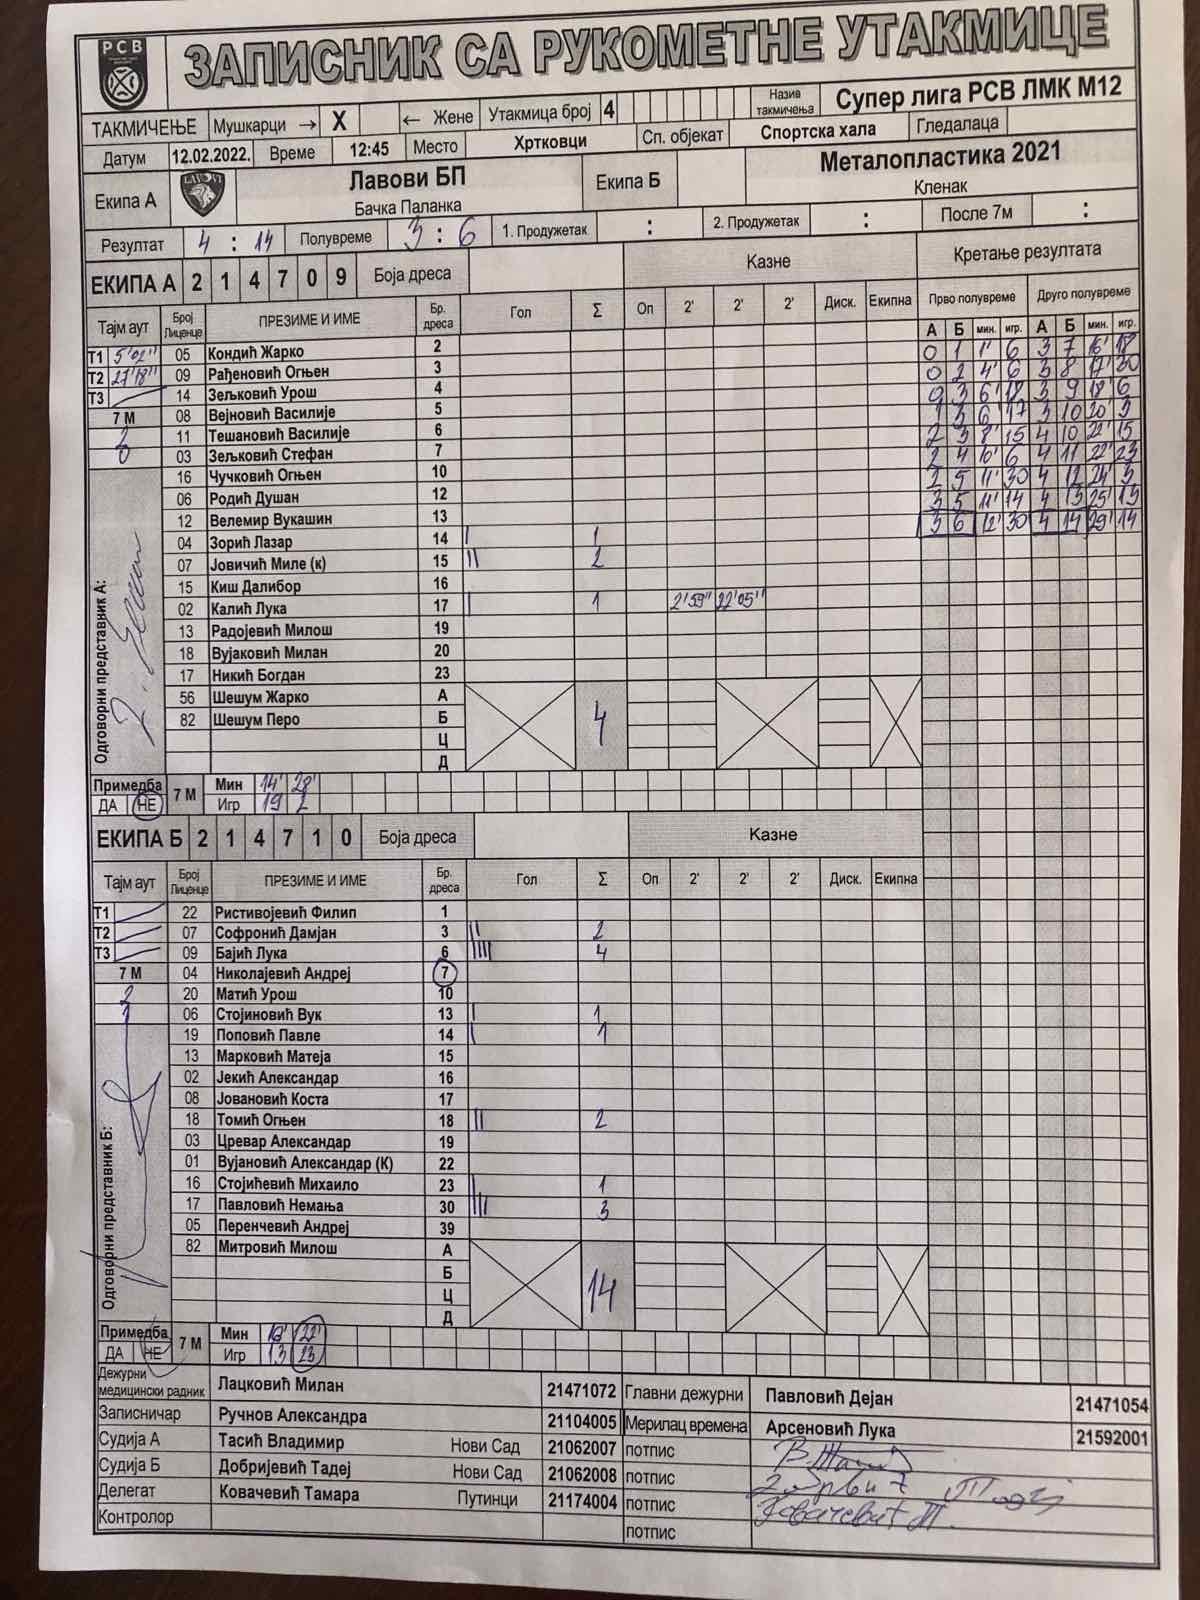 РСВ
ЗАПИСНИК СА РУКОМЕТНЕ УТАКМИЦЕ
ТАКМИЧЕЊЕ Мушкарци → X ← Жене Утакмица број 4 Назив такмичења Супер лига РСВ ЛМК М12
Датум 12.02.2022. Време 12:45 Место Хртковци Сп. објекат Спортска хала Гледалаца
Екипа А Лавови БП Екипа Б Металопластика 2021
Бачка Паланка Кленак
Резултат 4 : 14 Полувреме 3 : 6 1. Продужетак : 2. Продужетак : После 7м :
ЕКИПА А 2 1 4 7 0 9 Боја дреса Казне Кретање резултата
Тајм аут Број Лиценце ПРЕЗИМЕ И ИМЕ Бр. дреса Гол Σ Оп 2' 2' 2' Диск. Екипна Прво полувреме Друго полувреме
А Б мин. игр. А Б мин. игр.
Т1 5'02'' 05 Кондић Жарко 2 0 1 1' 6 3 7 16' 18
Т2 27'18'' 09 Рађеновић Огњен 3 0 2 4' 6 3 8 17' 30
Т3 14 Зељковић Урош 4 0 3 6' 18 3 9 18' 6
7 М 08 Вејновић Василије 5 1 3 6' 17 3 10 20' 3
2 11 Тешановић Василије 6 2 3 8' 15 4 10 22' 15
0 03 Зељковић Стефан 7 2 4 10' 6 4 11 22' 23
16 Чучковић Огњен 10 2 5 11' 30 4 12 24' 3
06 Родић Душан 12 3 5 11' 14 4 13 25' 13
12 Велемир Вукашин 13 3 6 12' 30 4 14 29' 14
04 Зорић Лазар 14 | 1
07 Јовичић Миле (к) 15 || 2
15 Киш Далибор 16
02 Калић Лука 17 | 1 2'59'' 22'05''
13 Радојевић Милош 19
18 Вујаковић Милан 20
17 Никић Богдан 23
56 Шешум Жарко А
82 Шешум Перо Б 4
Ц
Д
Одговорни представник А:
Примедба 7 М Мин 14' 28'
ДА НЕ Игр 19 2
ЕКИПА Б 2 1 4 7 1 0 Боја дреса Казне
Тајм аут Број Лиценце ПРЕЗИМЕ И ИМЕ Бр. дреса Гол Σ Оп 2' 2' 2' Диск. Екипна
Т1 22 Ристивојевић Филип 1
Т2 07 Софронић Дамјан 3 || 2
Т3 09 Бајић Лука 6 |||| 4
7 М 04 Николајевић Андреј 7
2 20 Матић Урош 10
1 06 Стојиновић Вук 13 | 1
19 Поповић Павле 14 | 1
13 Марковић Матеја 15
02 Јекић Александар 16
08 Јовановић Коста 17
18 Томић Огњен 18 || 2
03 Цревар Александар 19
01 Вујановић Александар (К) 22
16 Стојићевић Михаило 23 | 1
17 Павловић Немања 30 ||| 3
05 Перенчевић Андреј 39
82 Митровић Милош А
Б 14
Ц
Д
Одговорни представник Б:
Примедба 7 М Мин 22'
ДА НЕ Игр 13 23
Дежурни медицински радник Лацковић Милан 21471072 Главни дежурни Павловић Дејан 21471054
Записничар Ручнов Александра 21104005 Мерилац времена Арсеновић Лука 21592001
Судија А Тасић Владимир Нови Сад 21062007 потпис
Судија Б Добријевић Тадеј Нови Сад 21062008 потпис
Делегат Ковачевић Тамара Путинци 21174004 потпис
Контролор потпис